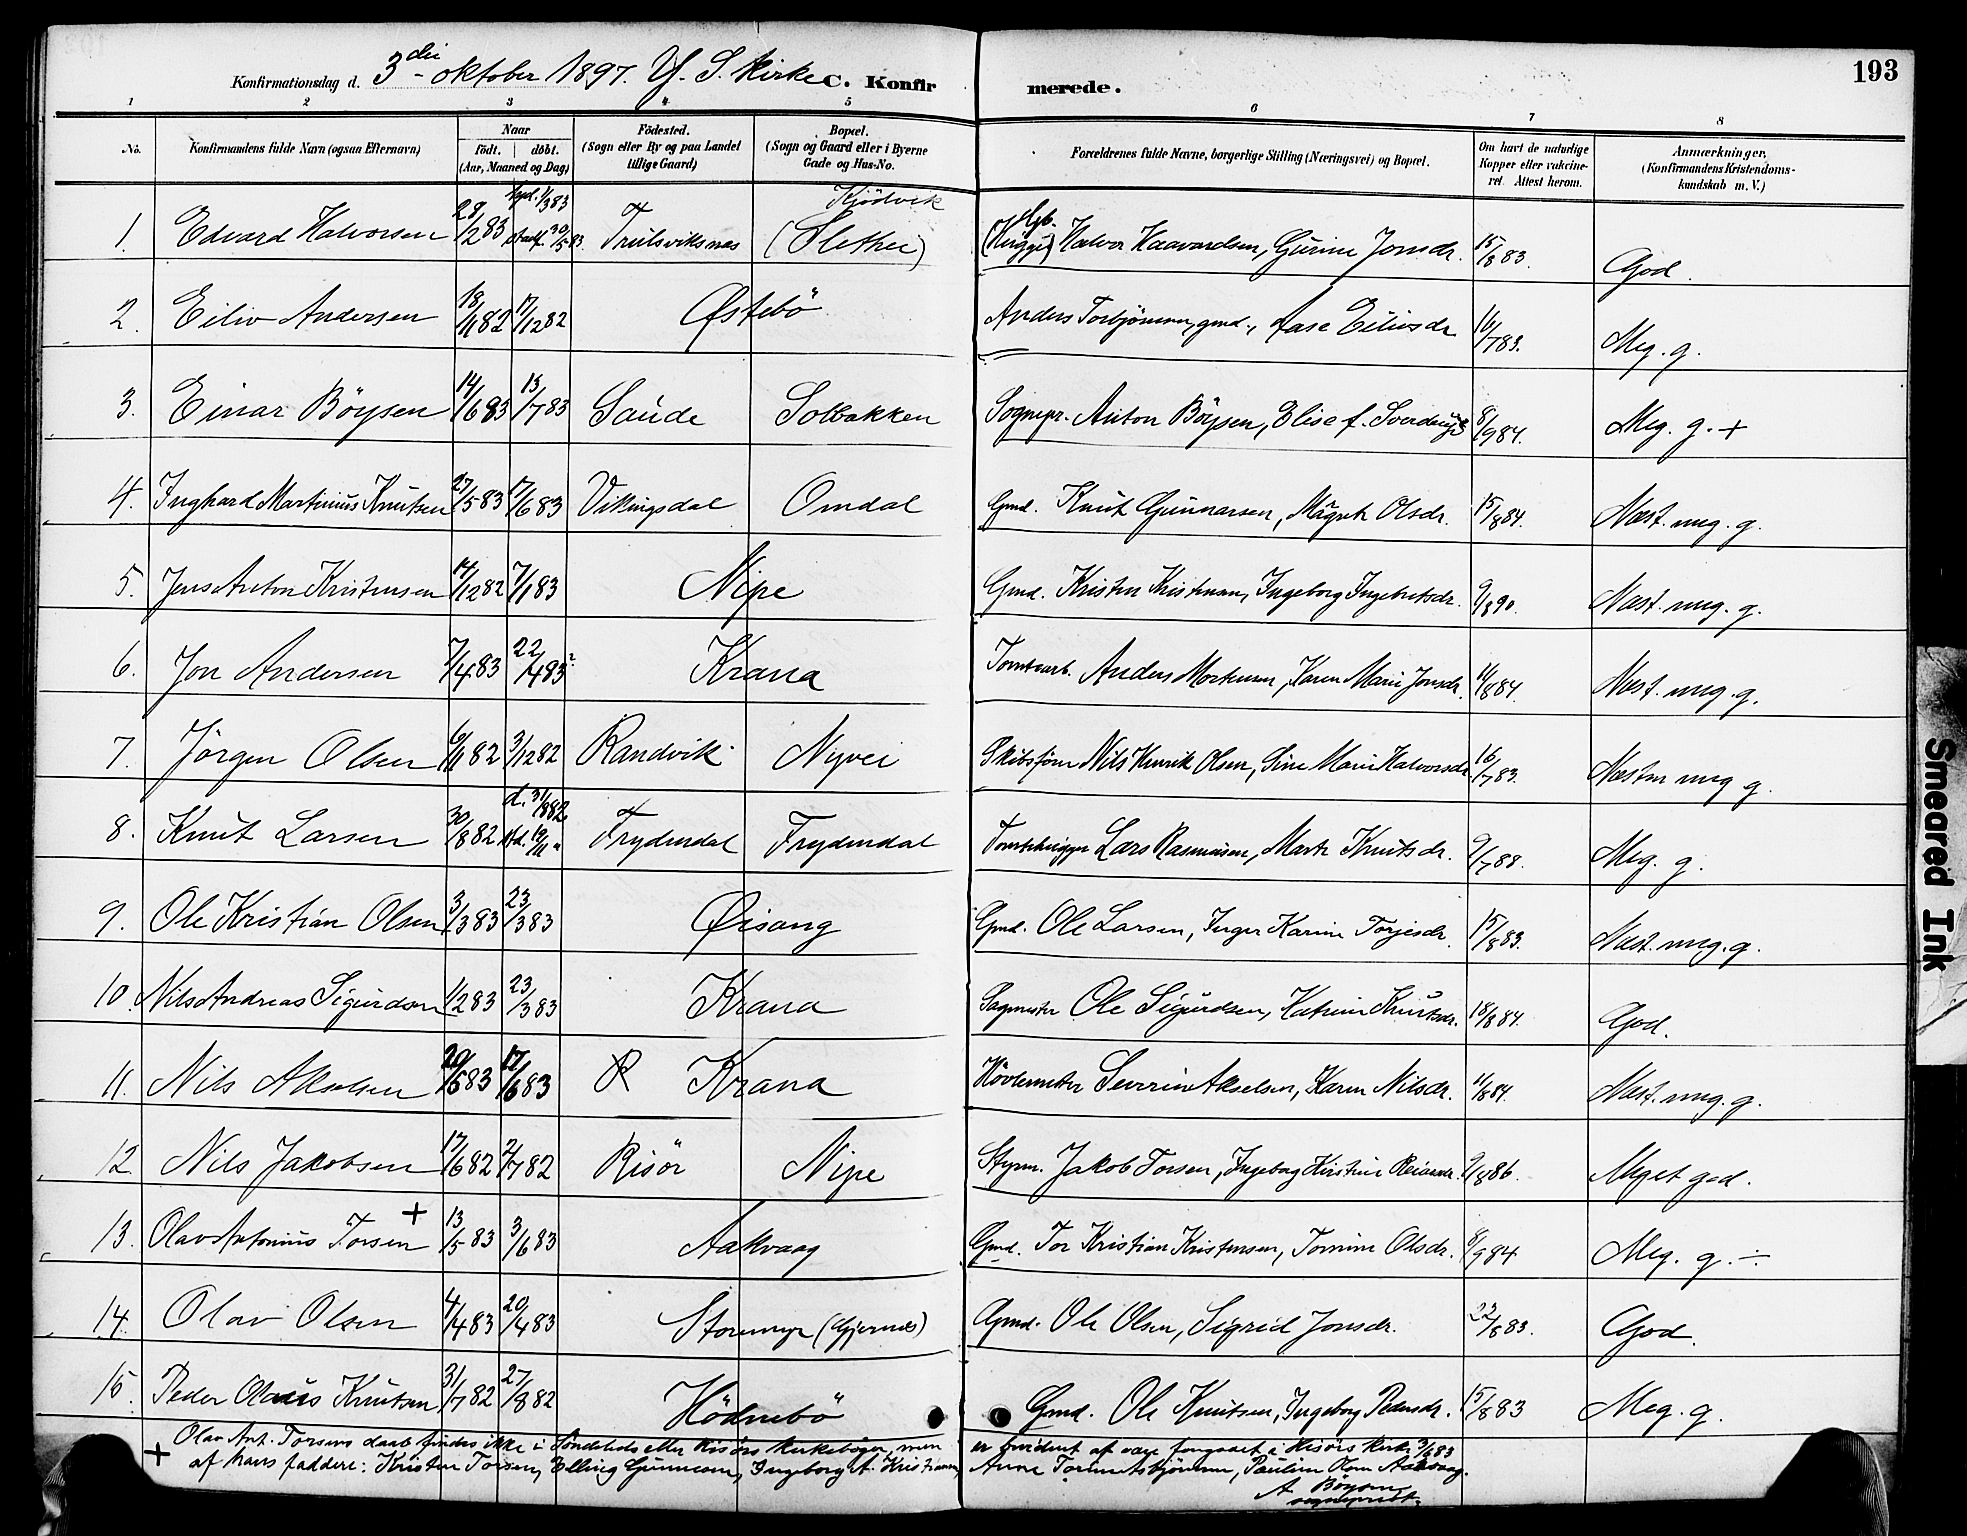 193
Konfirmationsdag d. 3die oktober 1897. Y. S. kirke C. Konfirmerede.
1 2 3 4 5 6 7 8
No. Konfirmandens fulde Navn (ogsaa Efternavn) Naar født. døbt. (Aar, Maaned og Dag) Födested. (Sogn eller By og paa Landet tillige Gaard) Bopæl. (Sogn og Gaard eller i Byerne Gade og Hus-No. Forældrenes fulde Navne, borgerlige Stilling (Næringsvei) og Bopæl. Om havt de naturlige Kopper eller vaccineret. Attest herom. Anmærkninger, (Konfirmandens Kristendomskundskab m. V.)
1. Edvard Halvorsen 28/2 83 hjd. 1/3 83 stadf. 30/5 83. Trulsviksnes Kjödvik (Slethei) Halvor Haavardsen, Gurine Jonsdr. 15/8 83. God.
2. Eiliv Andersen 18/11 82 17/12 82 Østebö Anders Torbjörnsen, gmd., Aase Eilivsdr. 16/7 83. Meg. g.
3. Einar Böysen 14/6 83 15/7 83 Saude Solbakken Sognepr. Anton Böysen, Elise f. Sverdrup 8/9 84. Meg. g. +
4. Inghard Martinius Knutsen 27/5 83 17/6 83 Vikingsdal Omdal Gmd. Knut Gunnarsen, Magnh. Olsdr. 15/8 84. Næst. meg. g.
5. Jens Anton Kristensen 14/12 82 7/1 83 Nipe Gmd. Kristen Kristensen, Ingeborg Ingebretsdr. 9/8 90. Næst. meg. g.
6. Jon Andersen 7/4 83 22/4 83 Krana Tomtearb. Anders Mortensen, Karen Marie Jonsdr. 14/8 84. Næst. meg. g.
7. Jörgen Olsen 6/11 82 3/12 82 Randvik Nyvei Skibsförer Nils Henrik Olsen, Sine Marie Halvorsdr. 16/7 83. Næsten meg g.
8. Knut Larsen 30/8 82 d. 31/8 82 std. 19/11 " Frydendal Frydendal Lars Rasmussen, Marte Knutsdr. 9/7 88. Meg. g.
9. Ole Kristian Olsen 3/3 83 23/3 83 Øisang Gmd. Ole Larsen, Inger Karine Torjesdr. 15/8 83. Næst. meg. g.
10. Nils Andreas Sigurdsen 1/2 83 23/3 83 Krana Sagmester Ole Sigurdsen, Katrine Knutsdr. 18/8 84. God.
11. Nils Akselsen 20/5 83 17/6 83 R Krana Hövlemester Severin Akselsen, Karen Nilsdr. 11/8 84. Næst. meg. g.
12. Nils Jakobsen 17/6 82 2/7 82 Risör Nipe Styrm. Jakob Torsen, Ingeborg Kirstine Reiersdr. 9/8 86. Meget god.
13. Olav Antonius Torsen + 13/5 83 3/6 83 Aakvaag Gmd. Tor Kristian Kristensen, Tomine Olsdr. 8/9 84 Meg. g. ÷
14. Olav Olsen 4/4 83 20/4 83 Stormyr (Gjernes) Gmd. Ole Olsen, Sigrid Jonsdr. 22/8 83. God.
15. Peder Olaus Knutsen 31/7 82 27/8 82 Hödnebö Gmd. Ole Knutsen, Ingeborg Pedersdr. 15/8 83 Meg. g.
+ Olav Ant. Torsens daab findes ikke i Söndeleds eller Risörs kirkebøger, men er evident at være foregaaet i Risörs kirke 3/6 83
af hans faddere: Kristen Torsen, Elling Gunnarsen, Ingeborg A. Kristensen, Anne Paulsen Aakvaag.
A Böysen
sogneprest.
Smeared Ink